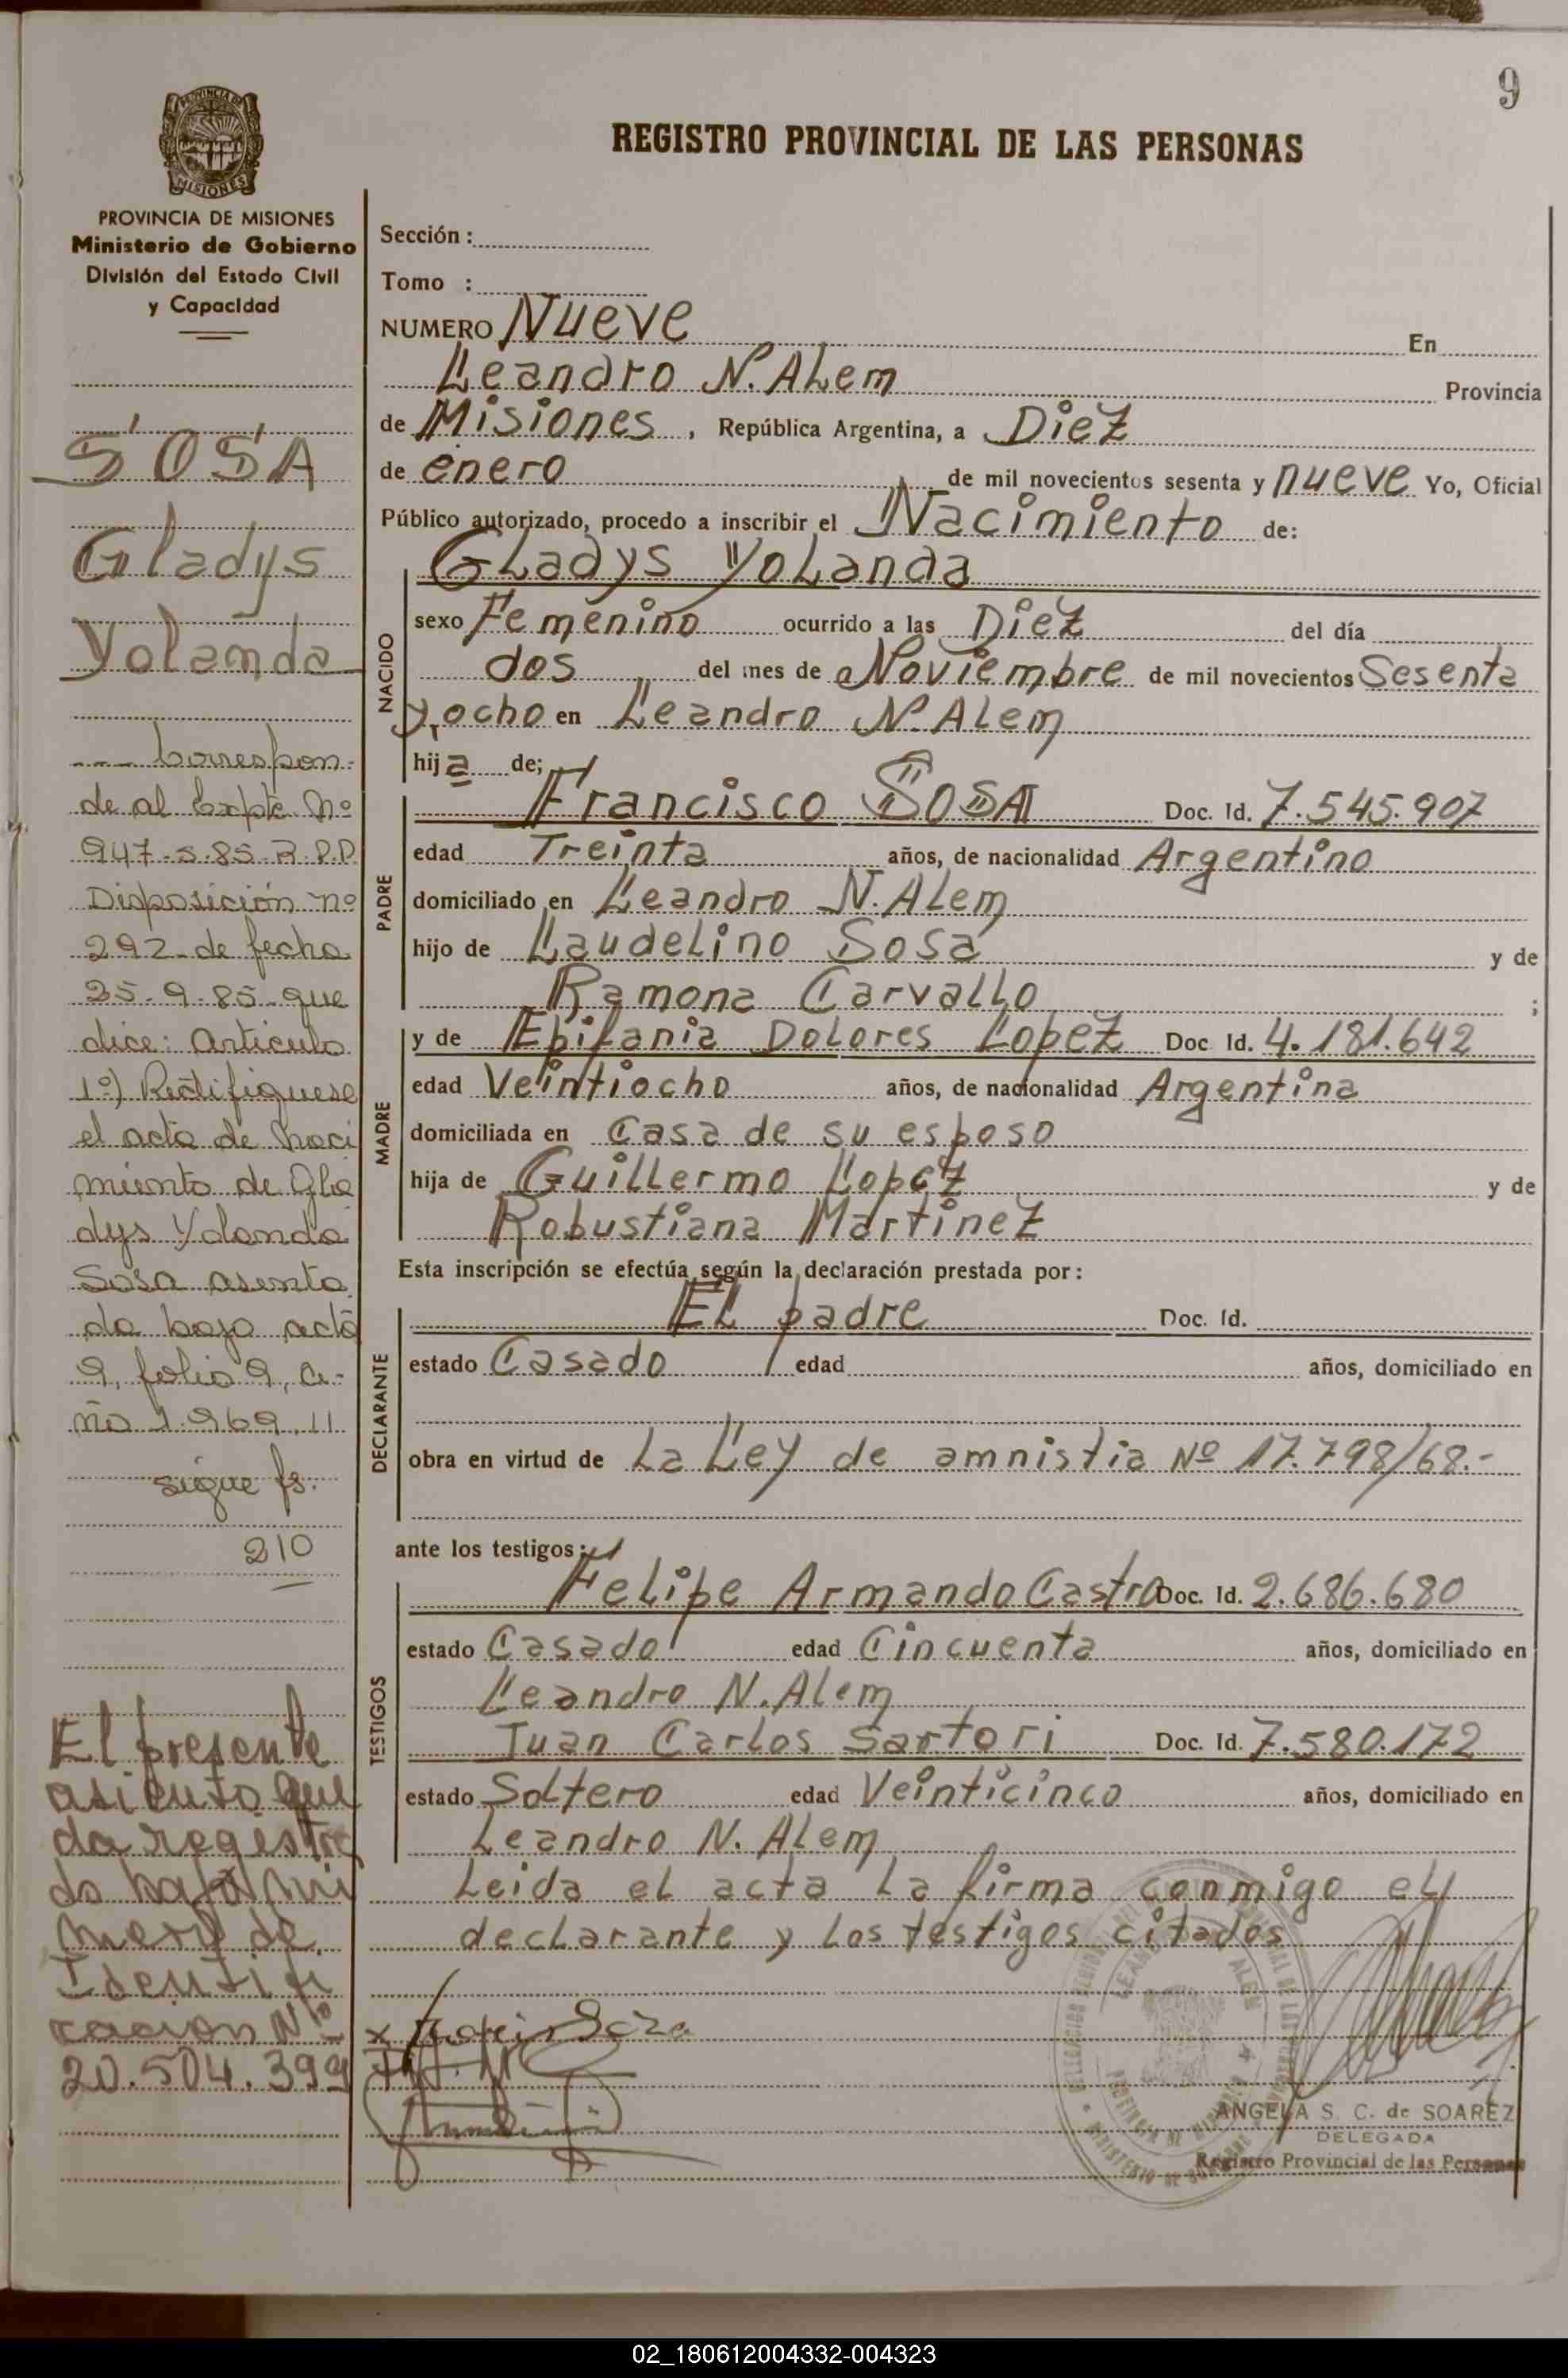 9
REGISTRO PROVINCIAL DE LAS PERSONAS
PROVINCIA DE
MISIONES
PROVINCIA DE MISIONES
Ministerio de Gobierno
División del Estado Civil
y Capacidad
SOSA
Gladys
Yolanda
--- Correspon-
de al Expte. Nº
947-S-85-R.P.P.
Disposición nº
292 de fecha
25-9-85 que
dice: Artículo
1º) Rectifiquese
el acta de naci
miento de Gla
dys Yolanda
Sosa asenta
da bajo acta
9, folio 9, a-
ño 1.969, 11
sigue fs.
210
El presente
asiento que
da registra
do bajo nú
mero de
Identifi
cacion Nº
20.504.399
Sección :
Tomo :
NUMERO Nueve En
Leandro N. Alem Provincia
de Misiones, República Argentina, a Diez
de enero de mil novecientos sesenta y nueve Yo, Oficial
Público autorizado, procedo a inscribir el Nacimiento de:
Gladys Yolanda
NACIDO
sexo Femenino ocurrido a las Diez del día
dos del mes de Noviembre de mil novecientos Sesenta
y ocho en Leandro N. Alem
hija de;
PADRE
Francisco SOSA Doc. Id. 7.545.907
edad Treinta años, de nacionalidad Argentino
domiciliado en Leandro N. Alem
hijo de Laudelino Sosa y de
Ramona Carvallo ;
MADRE
y de Epifania Dolores Lopez Doc Id. 4.181.642
edad Veintiocho años, de nacionalidad Argentina
domiciliada en Casa de su esposo
hija de Guillermo Lopez y de
Robustiana Martinez
Esta inscripción se efectúa según la declaración prestada por:
DECLARANTE
El padre Doc. Id.
estado Casado edad años, domiciliado en
obra en virtud de La Ley de amnistia Nº 17.798/68.-
ante los testigos:
TESTIGOS
Felipe Armando Castro Doc. Id. 2.686.680
estado Casado edad Cincuenta años, domiciliado en
Leandro N. Alem
Juan Carlos Sartori Doc. Id. 7.580.172
estado Soltero edad Veinticinco años, domiciliado en
Leandro N. Alem
Leida el acta la firma conmigo el
declarante y los testigos citados
ANGELA S. C. de SOAREZ
DELEGADA
Registro Provincial de las Personas
02_180612004332-004323